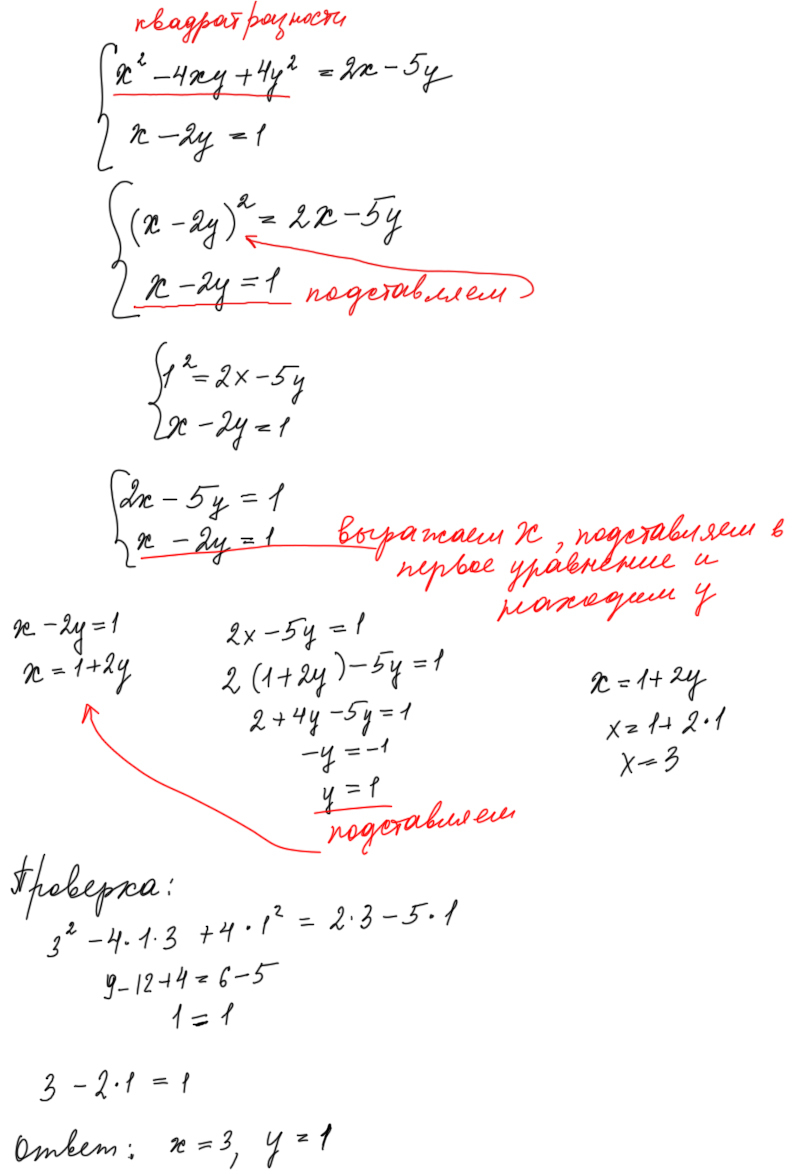 квадрат разности
x² - 4xy + 4y² = 2x - 5y
x - 2y = 1
(x - 2y)² = 2x - 5y
x - 2y = 1 подставляем
1² = 2x - 5y
x - 2y = 1
2x - 5y = 1
x - 2y = 1 выражаем x, подставляем в
первое уравнение и
находим y
x - 2y = 1
x = 1 + 2y
2x - 5y = 1
2(1 + 2y) - 5y = 1
2 + 4y - 5y = 1
-y = -1
y = 1
подставляем
x = 1 + 2y
x = 1 + 2·1
x = 3
Проверка:
3² - 4·1·3 + 4·1² = 2·3 - 5·1
9 - 12 + 4 = 6 - 5
1 = 1
3 - 2·1 = 1
Ответ: x = 3, y = 1